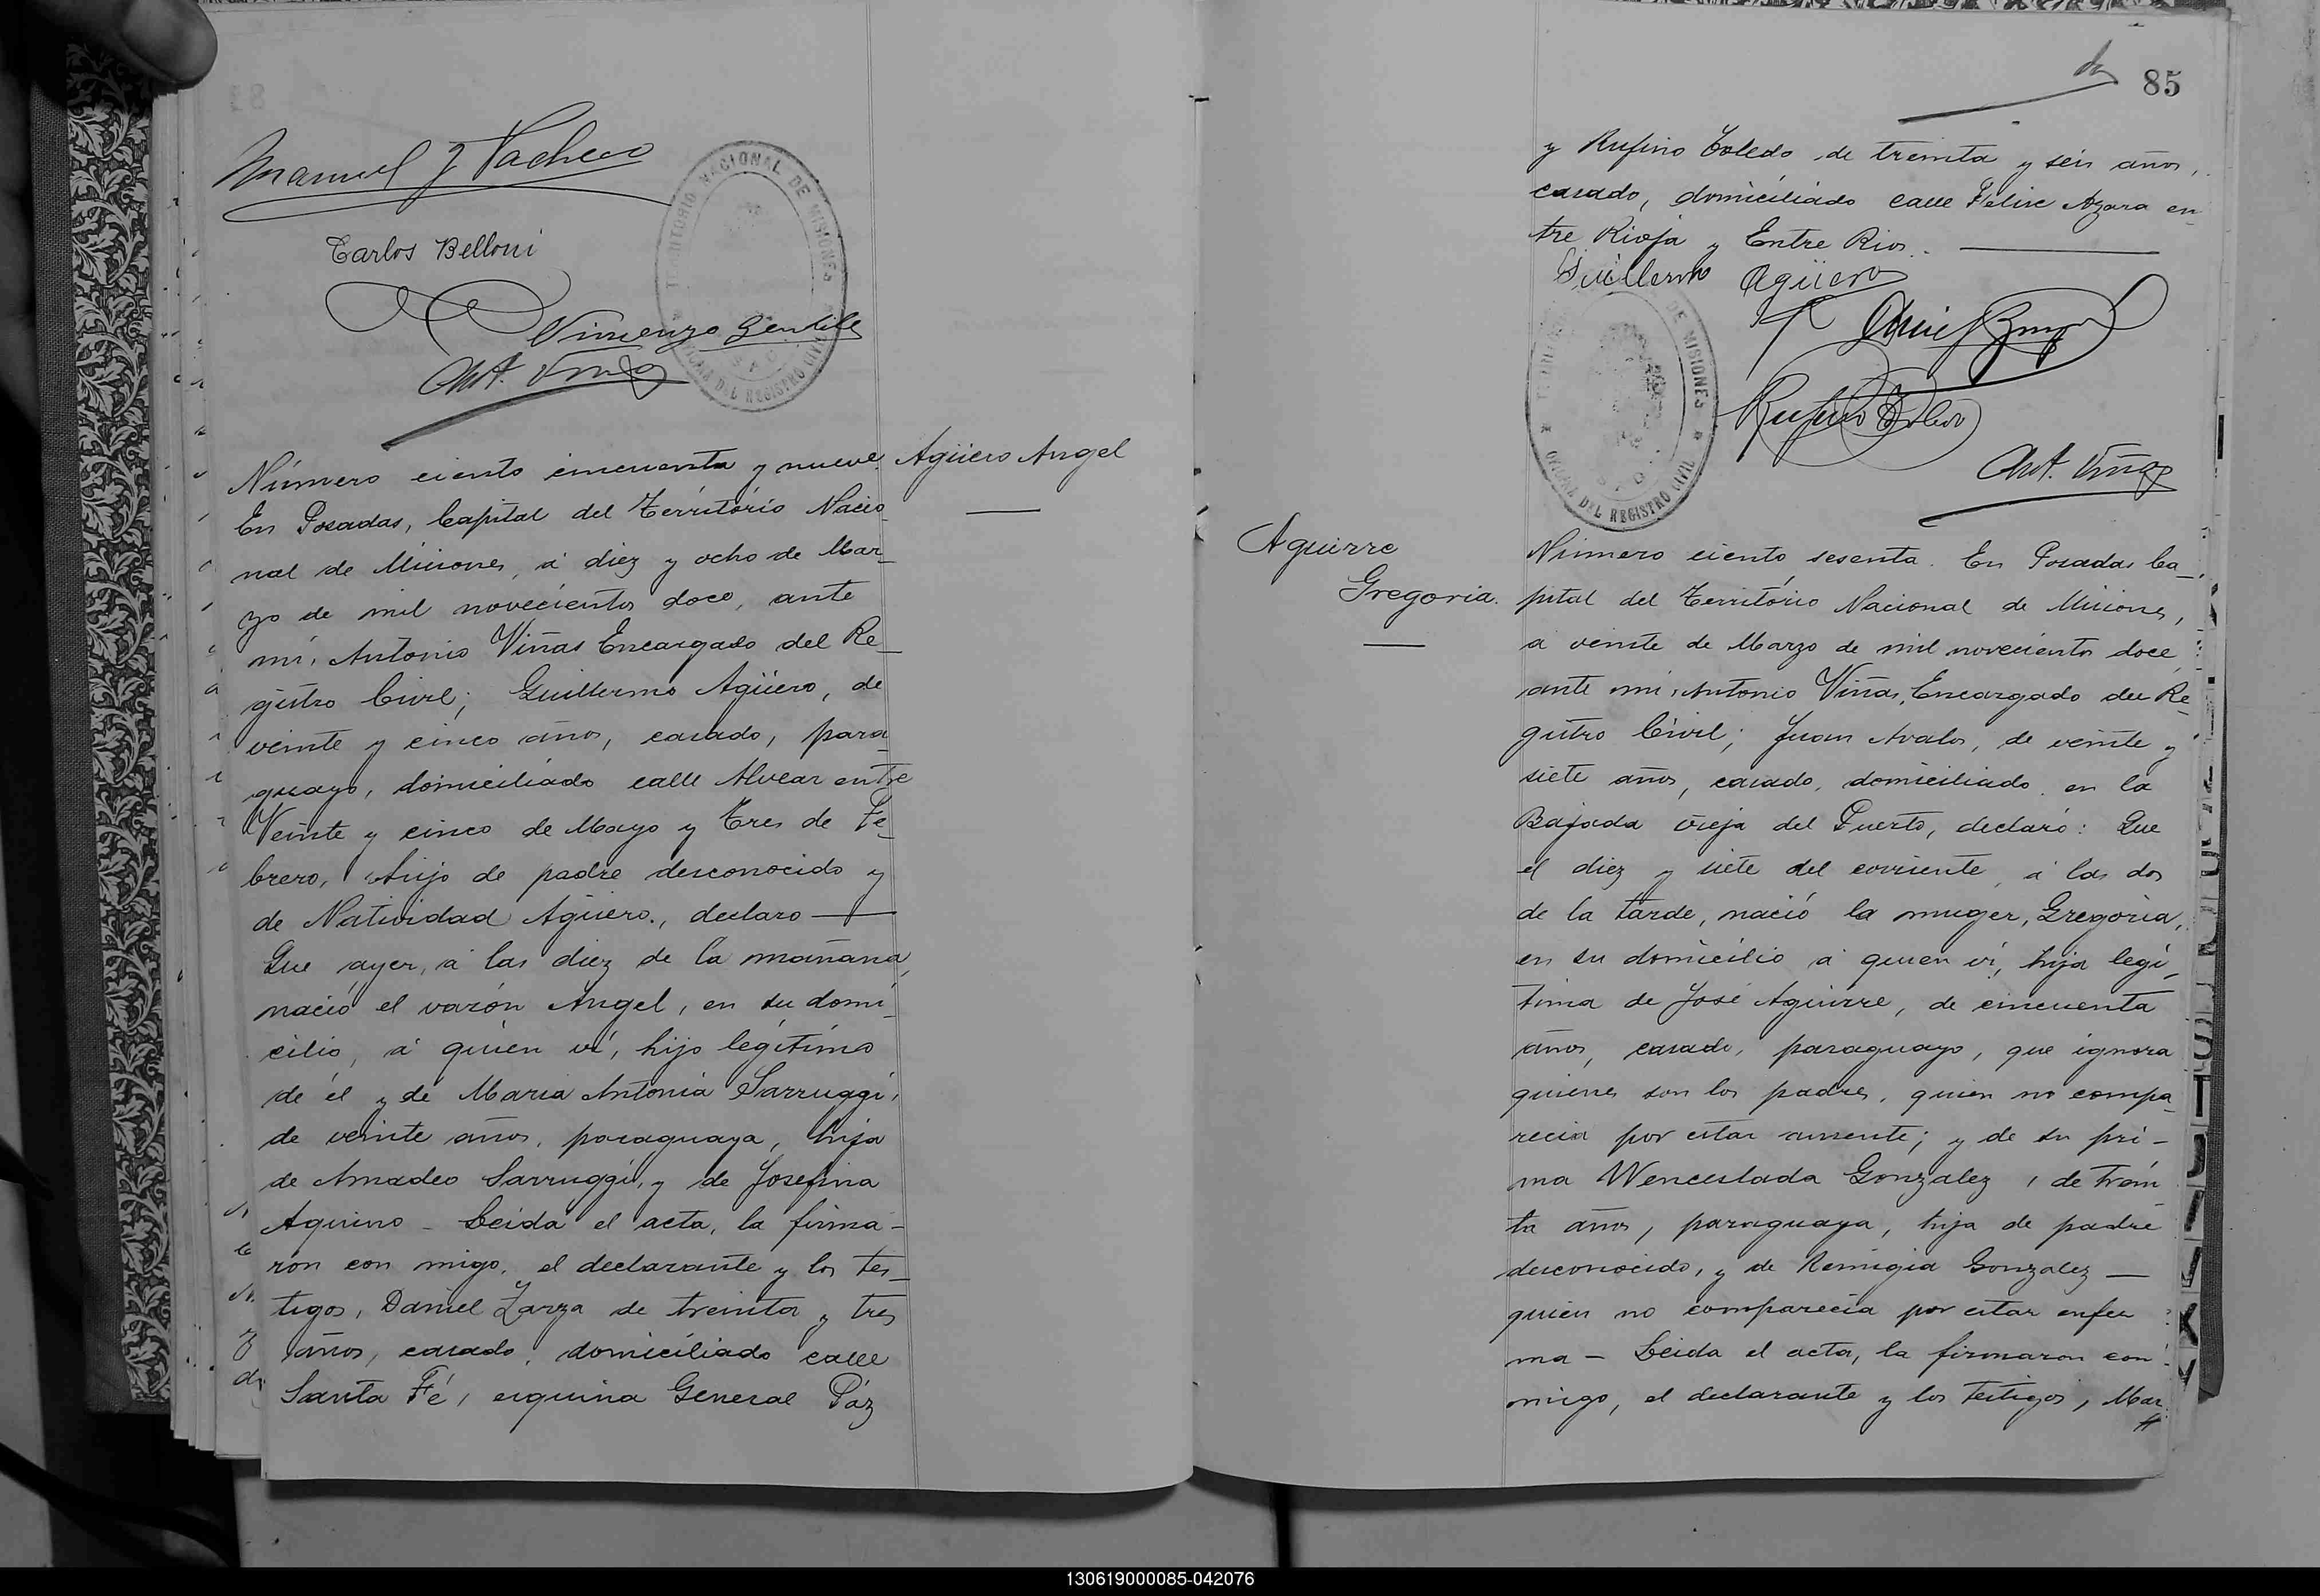 Manuel J Pacheco
Carlos Belloni
Vincenzo Gentile
Ant. Viñas
TERRITORIO NACIONAL DE MISIONES
OFICINA DEL REGISTRO CIVIL
Agüero Angel
Número ciento cincuenta y nueve
En Posadas, Capital del Território Nacio_
nal de Misiones, á diez y ocho de Mar_
zo de mil novecientos doce, ante
mi, Antonio Viñas Encargado del Re_
gistro Civil; Guillermo Agüero, de
veinte y cinco años, casado, para_
guayo, domiciliado calle Alvear entre
Veinte y cinco de Mayo y Tres de Fe_
brero, hijo de padre desconocido y
de Natividad Agüero., declaro —
Que ayer, á las diez de la mañana,
nació el varón Angel, en su domi_
cilio, á quien vi, hijo legítimo
de él y de Maria Antonia Sarruggi,
de veinte años, paraguaya, hija
de Amadeo Sarruggi, y de Josefina
Aquino _ Leida el acta, la firma-
ron con migo, el declarante y los tes_
tigos, Daniel Zarza de treinta y tres
años, casado, domiciliado calle
Santa Fé, esquina General Páz
85
y Rufino Toledo de treinta y seis años,
casado, domiciliado calle Felix Azara en_
tre Rioja y Entre Rios. —
Guillermo Agüero
Rufino Toledo
Ant. Viñas
DE MISIONES
OFICINA DEL REGISTRO CIVIL
Aguirre
Gregoria.
Número ciento sesenta. En Posadas Ca_
pital del Território Nacional de Misiones,
a veinte de Marzo de mil novecientos doce
ante mi, Antonio Viñas, Encargado del Re_
gistro Civil; Juan Avalos, de veinte y
siete años, casado, domiciliado en la
Bajada vieja del Puerto, declaró: Que
el diez y siete del corriente, á las dos
de la tarde, nació la muger, Gregoria,
en su domicilio á quien vi, hija legí_
tima de José Aguirre, de cincuenta
años, casado, paraguayo, que ignora
quienes son los padres, quien no compa_
recia por estar ausente; y de su pri-
ma Wenceslada Gonzalez, de trein
ta años, paraguaya, hija de padre
desconocido, y de Remigia Gonzalez —
quien no comparecia por estar enfer
ma — Leida el acta, la firmaron con
migo, el declarante y los testigos, Mar
130619000085-042076